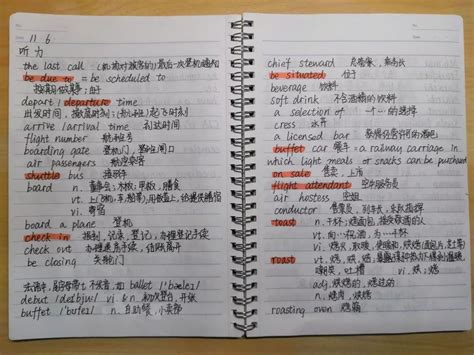 11 6
听力
the last call (机场对旅客的)最后一次登机通知
be due to = be scheduled to
按期做某事;由于
depart / departure time
出发时间,(航班)起飞时刻
arrive / arrival time 到达时间
flight number 航班号
boarding gate 登机门,登机闸口
air passengers 航空乘客
shuttle bus 接驳车
board n. 董事会;木板;甲板;膳食
vt. 上(飞机,车,船等)
vi. 寄宿
board a plane 登机
check in 报到,记录,登记,办理登记手续
check out 结账离开
be closing 关舱门
ballet /'bæleɪ/
debut /'deɪbjuː/ vi & n. 初次登台,开张
buffet /'bʊfeɪ/ n. 自助餐,小卖部
chief steward 乘务长
be situated 位于
beverage 饮料
soft drink 不含酒精的饮料
a selection of 一个…的选择
cress 水芹
a licensed bar
buffet car 餐车 = a railway carriage in
which light meals or snacks can be purchased
on sale 出售,上市
flight attendant 空中服务员
air hostess 空姐
conductor 售票员,列车长,
toast n. 干杯;烤面包,接受敬酒的人
vt. 向…祝酒,
vi. 烤火,取暖,
roast vt. 烤,烘,
嘲笑,吐槽 vi. 烤;烘
adj. 烘烤的,烤过的
n. 烤肉,烘烤
roasting oven 烤箱